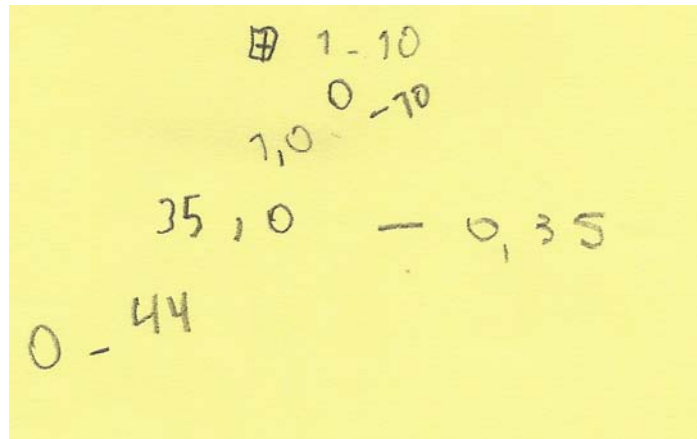 ⊞ 1-10
0-10
1,0
35,0 - 0,35
0-44